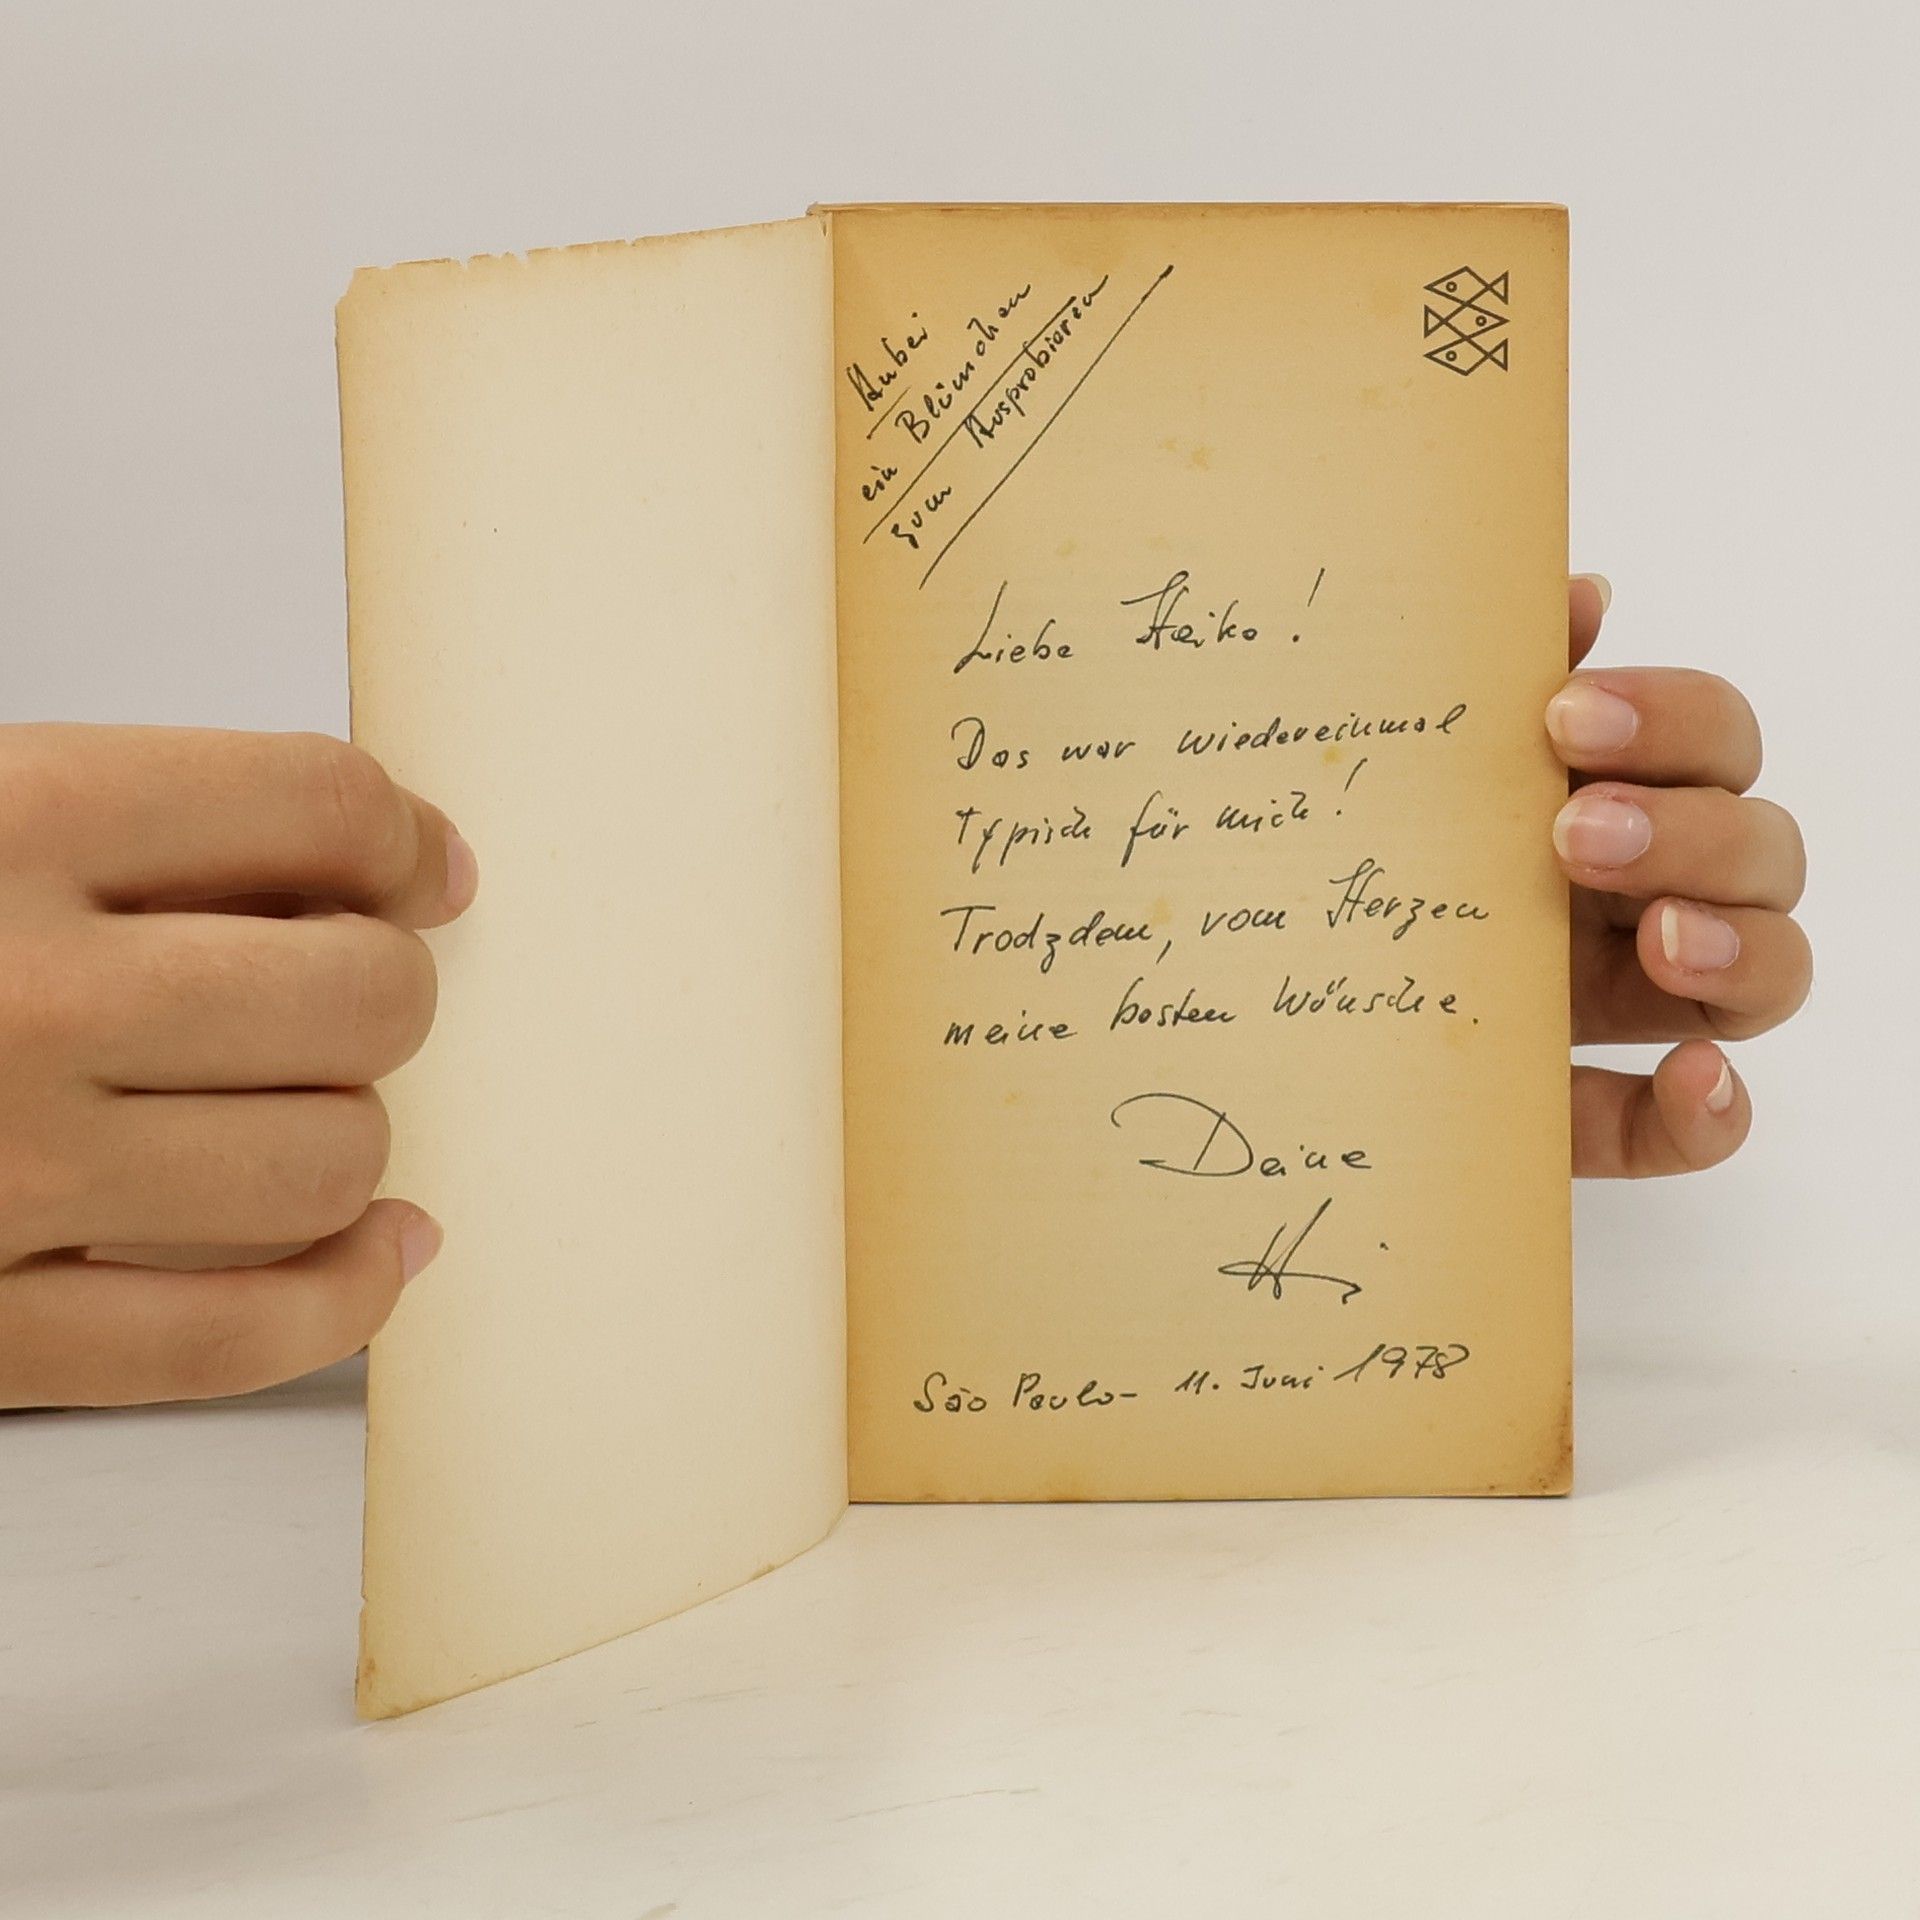 Anbei
ein Blümchen
zum Ausprobieren
Liebe Heiko!
Das war wiedereinmal
typisch für mich!
Trodzdem, vom Herzen
meine besten Wünsche.
Deine
São Paulo - 11. Juni 1978